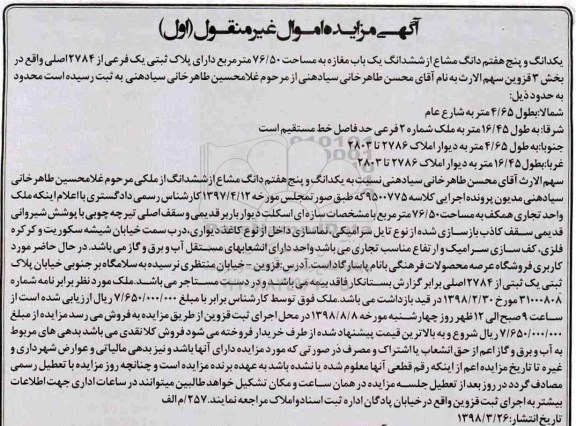 آگهی مزایده اموال غیر منقول (اول)
یکدانگ و پنج هفتم دانگ مشاع از ششدانگ یک باب مغازه به مساحت ۷۶/۵۰ متر مربع دارای پلاک ثبتی یک فرعی از ۲۷۸۴ اصلی واقع در
بخش ۳ قزوین سهم الارث به نام آقای محسن طاهرخانی سیادهنی از مرحوم غلامحسین طاهرخانی سیادهنی به ثبت رسیده است محدود
به حدود ذیل:
شمالا: بطول ۴/۶۵ متر به شارع عام
شرقا: به طول ۱۶/۴۵ متر به ملک شماره ۲ فرعی حد فاصل خط مستقیم است
جنوبا: به طول ۴/۶۵ متر به دیوار املاک ۲۷۸۶ تا ۲۸۰۳
غربا: بطول ۱۶/۴۵ متر به دیوار املاک ۲۷۸۶ تا ۲۸۰۳
سهم الارث آقای محسن طاهرخانی سیادهنی نسبت به یکدانگ و پنج هفتم دانگ مشاع از ششدانگ از ملکی مرحوم غلامحسین طاهرخانی
سیادهنی مدیون پرونده اجرایی کلاسه ۹۵۰۰۷۷۵ که طبق صورتمجلس مورخه ۱۳۹۷/۴/۱۲ کارشناس رسمی دادگستری با اعلام اینکه ملک
واحد تجاری همکف به مساحت ۷۶/۵۰ متر مربع با مشخصات سازه ای اسکلت دیوار باربر قدیمی و سقف اصلی تیرچه چوبی با پوشش شیروانی
قدیمی سقف کاذب بازسازی شده از نوع تایل سرامیکی، نماسازی داخل از نوع کاغذ دیواری، درب سمت خیابان شیشه سکوریت و کرکره
فلزی، کف سازی سرامیک و ارتفاع مناسب تجاری می باشد واحد دارای انشعابهای مستقل آب و برق و گاز می باشد. در حال حاضر مورد
کاربری فروشگاه عرضه محصولات فرهنگی بانام پاسارگاد است. آدرس: قزوین - خیابان منتظری نرسیده به سلامگاه بر جنوبی خیابان پلاک
ثبتی یک ثبتی از ۲۷۸۴ اصلی برابر گزارش بستانکار فاقد بیمه می باشد و در دست مستاجر می باشد. ملک مورد نظر برابر نامه شماره
۳۱۰۰۰۸۰۸ مورخ ۱۳۹۸/۲/۳۰ در قید بازداشت می باشد. ملک فوق توسط کارشناس برابر با مبلغ ۷/۶۵۰/۰۰۰/۰۰۰ ریال ارزیابی شده است از
ساعت ۹ صبح الی ۱۲ ظهر روز چهارشنبه مورخه ۱۳۹۸/۸/۸ در محل اجرای ثبت قزوین از طریق مزایده به فروش می رسد مزایده از مبلغ
۷/۶۵۰/۰۰۰/۰۰۰ ریال شروع و به بالاترین قیمت پیشنهاد شده از طرف خریدار فروخته می شود فروش کلا نقدی می باشد بدهی های مربوط
به آب و برق و گاز اعم از حق انشعاب یا اشتراک و مصرف در صورتی که مورد مزایده دارای آنها باشد و نیز بدهی مالیاتی و عوارض شهرداری و
غیره تا تاریخ مزایده اعم از اینکه رقم قطعی آنها معلوم شده یا نشده باشد به عهده برنده مزایده است و چنانچه روز مزایده با تعطیل رسمی
مصادف گردد در روز بعد از تعطیل جلسه مزایده در همان ساعت و مکان تشکیل خواهد طالبین میتوانند در ساعات اداری جهت اطلاعات
بیشتر به اجرای ثبت قزوین واقع در خیابان پادگان اداره ثبت اسناد و املاک مراجعه نمایند. ۲۵۷/م الف
تاریخ انتشار: ۱۳۹۸/۳/۲۶